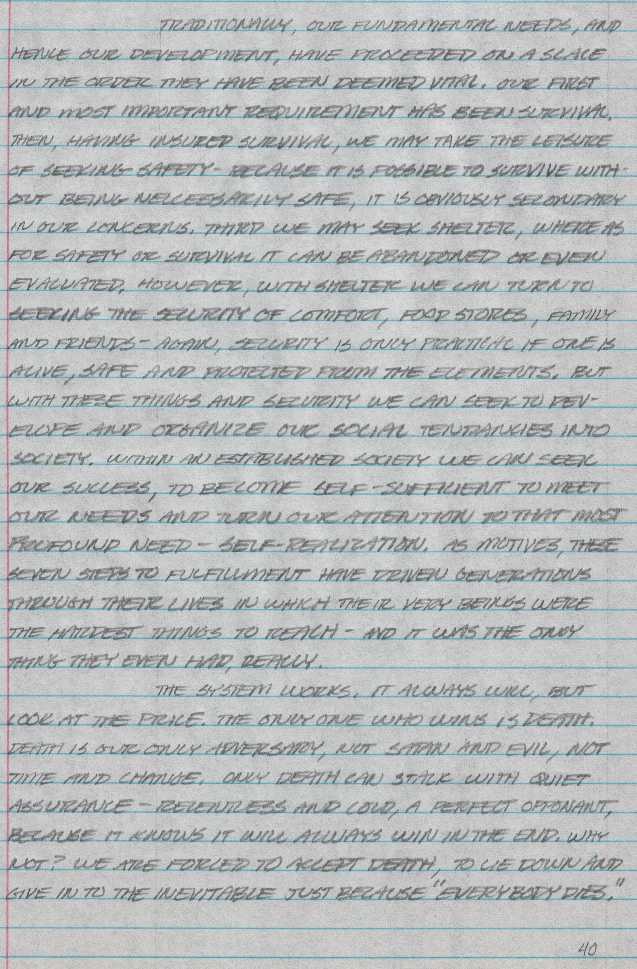 TRADITIONALLY, OUR FUNDAMENTAL NEEDS, AND
HENCE OUR DEVELOPMENT, HAVE PROCEEDED ON A SCALE
IN THE ORDER THEY HAVE BEEN DEEMED VITAL. OUR FIRST
AND MOST IMPORTANT REQUIREMENT HAS BEEN SURVIVAL.
THEN, HAVING INSURED SURVIVAL, WE MAY TAKE THE LEISURE
OF SEEKING SAFETY - BECAUSE IT IS POSSIBLE TO SURVIVE WITH-
OUT BEING NECCESSARILY SAFE, IT IS OBVIOUSLY SECONDARY
IN OUR CONCERNS. THIRD WE MAY SEEK SHELTER, WHERE AS
FOR SAFETY OR SURVIVAL IT CAN BE ABANDONED OR EVEN
EVALUATED. HOWEVER, WITH SHELTER WE CAN TURN TO
SEEKING THE SECURITY OF COMFORT, FOOD STORES, FAMILY
AND FRIENDS - AGAIN, SECURITY IS ONLY PRACTICAL IF ONE IS
ALIVE, SAFE AND PROTECTED FROM THE ELEMENTS. BUT
WITH THESE THINGS AND SECURITY WE CAN SEEK TO DEV-
ELOPE AND ORGANIZE OUR SOCIAL TENDANCIES INTO
SOCIETY. WITHIN AN ESTABLISHED SOCIETY WE CAN SEEK
OUR SUCCESS, TO BECOME SELF-SUFFICIENT TO MEET
OUR NEEDS AND TURN OUR ATTENTION TO THAT MOST
PROFOUND NEED - SELF-REALIZATION. AS MOTIVES, THESE
SEVEN STEPS TO FULFILLMENT HAVE DRIVEN GENERATIONS
THROUGH THEIR LIVES IN WHICH THEIR VERY BEINGS WERE
THE HARDEST THINGS TO REACH - AND IT WAS THE ONLY
THING THEY EVEN HAD, REALLY.
THE SYSTEM WORKS. IT ALWAYS WILL, BUT
LOOK AT THE PRICE. THE ONLY ONE WHO WINS IS DEATH.
DEATH IS OUR ONLY ADVERSARY, NOT SATAN AND EVIL, NOT
TIME AND CHANGE. ONLY DEATH CAN STALK WITH QUIET
ASSURANCE - RELENTLESS AND COLD, A PERFECT OPPONANT,
BECAUSE IT KNOWS IT WILL ALWAYS WIN IN THE END. WHY
NOT? WE ARE FORCED TO ACCEPT DEATH, TO LIE DOWN AND
GIVE IN TO THE INEVITABLE JUST BECAUSE "EVERYBODY DIES."
40